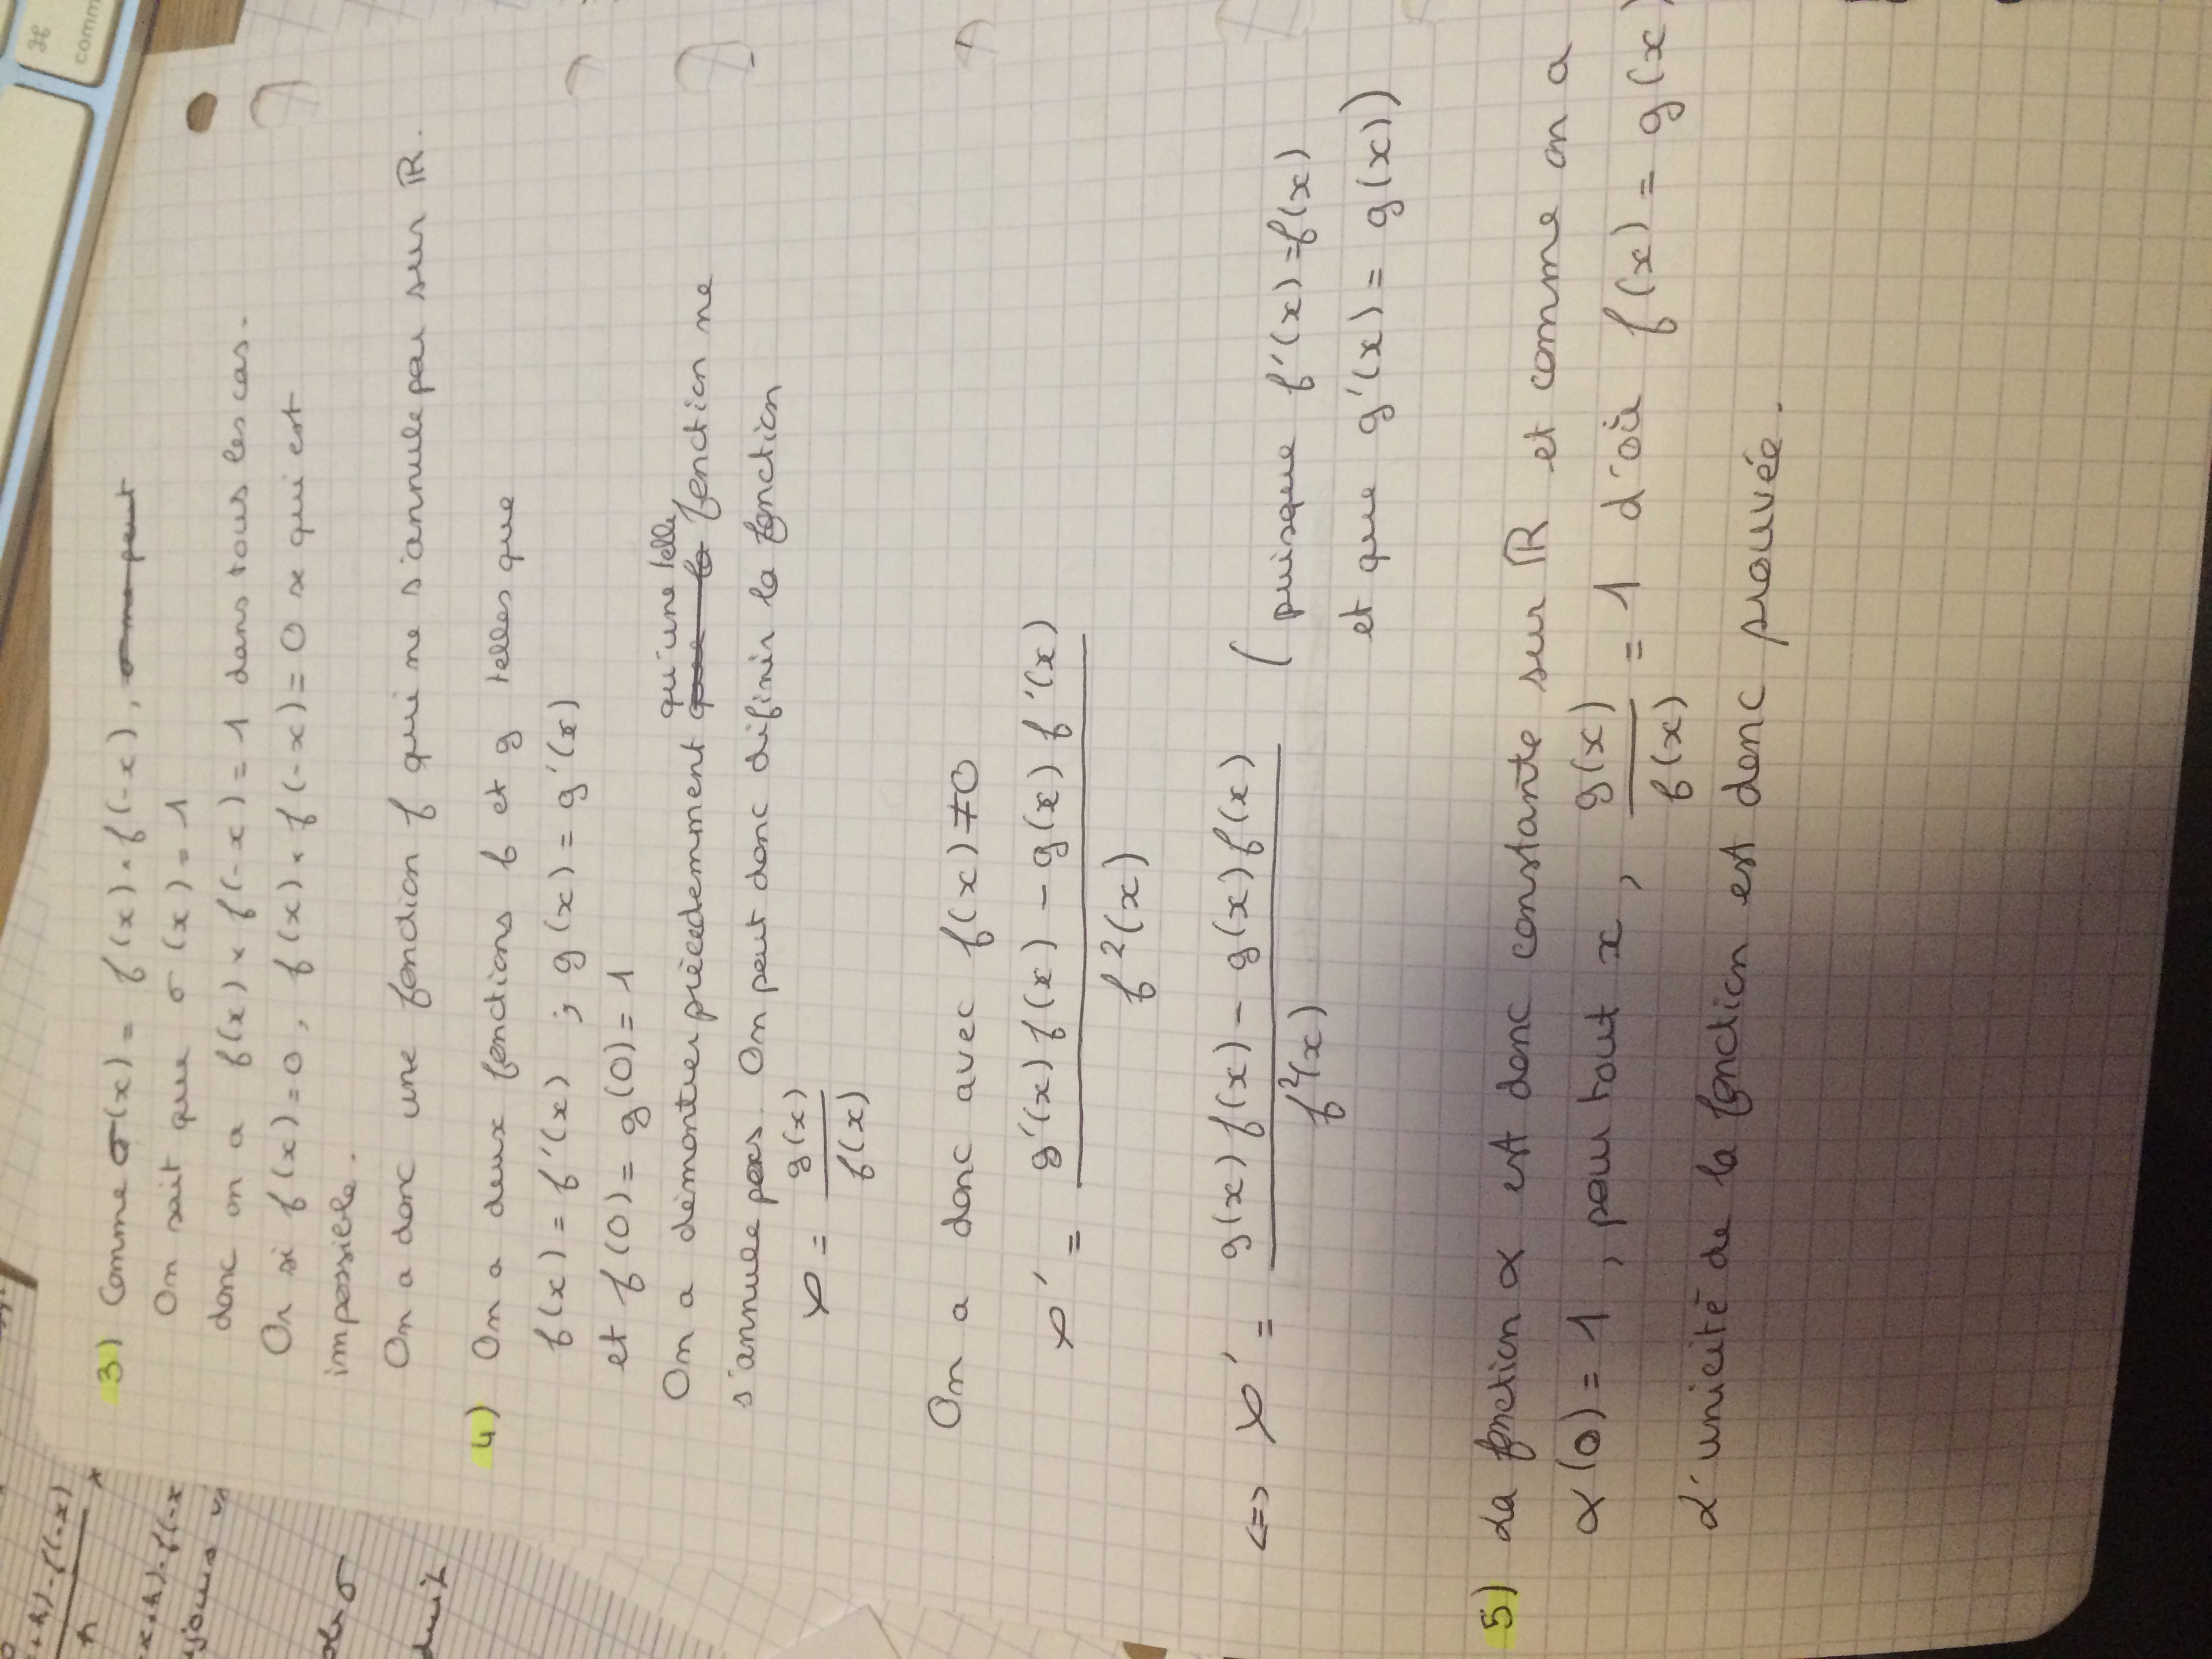 3) Comme σ(x) = f(x) × f(-x),
On sait que σ(x) = 1
donc on a f(x) × f(-x) = 1 dans tous les cas.
Or si f(x) = 0, f(x) × f(-x) = 0 x qui est
impossible.
On a donc une fonction f qui ne s'annule pas sur ℝ.
4) On a deux fonctions f et g telles que
f(x) = f'(x) ; g(x) = g'(x)
et f(0) = g(0) = 1
qu'une telle
On a démontrer précedemment que la fonction ne
s'annule pas. On peut donc difinir la fonction
α = g(x) / f(x)
On a donc avec f(x) ≠ 0
α' = g'(x) f(x) - g(x) f'(x) / f²(x)
<=> α' = g(x) f(x) - g(x) f(x) / f²(x) ( puisque f'(x) = f(x)
et que g'(x) = g(x))
5) La fonction α est donc constante sur ℝ et comme on a
α(0) = 1, pour tout x, g(x) / f(x) = 1 d'où f(x) = g(x)
L'unicité de la fonction est donc prouvée.
command
⌘